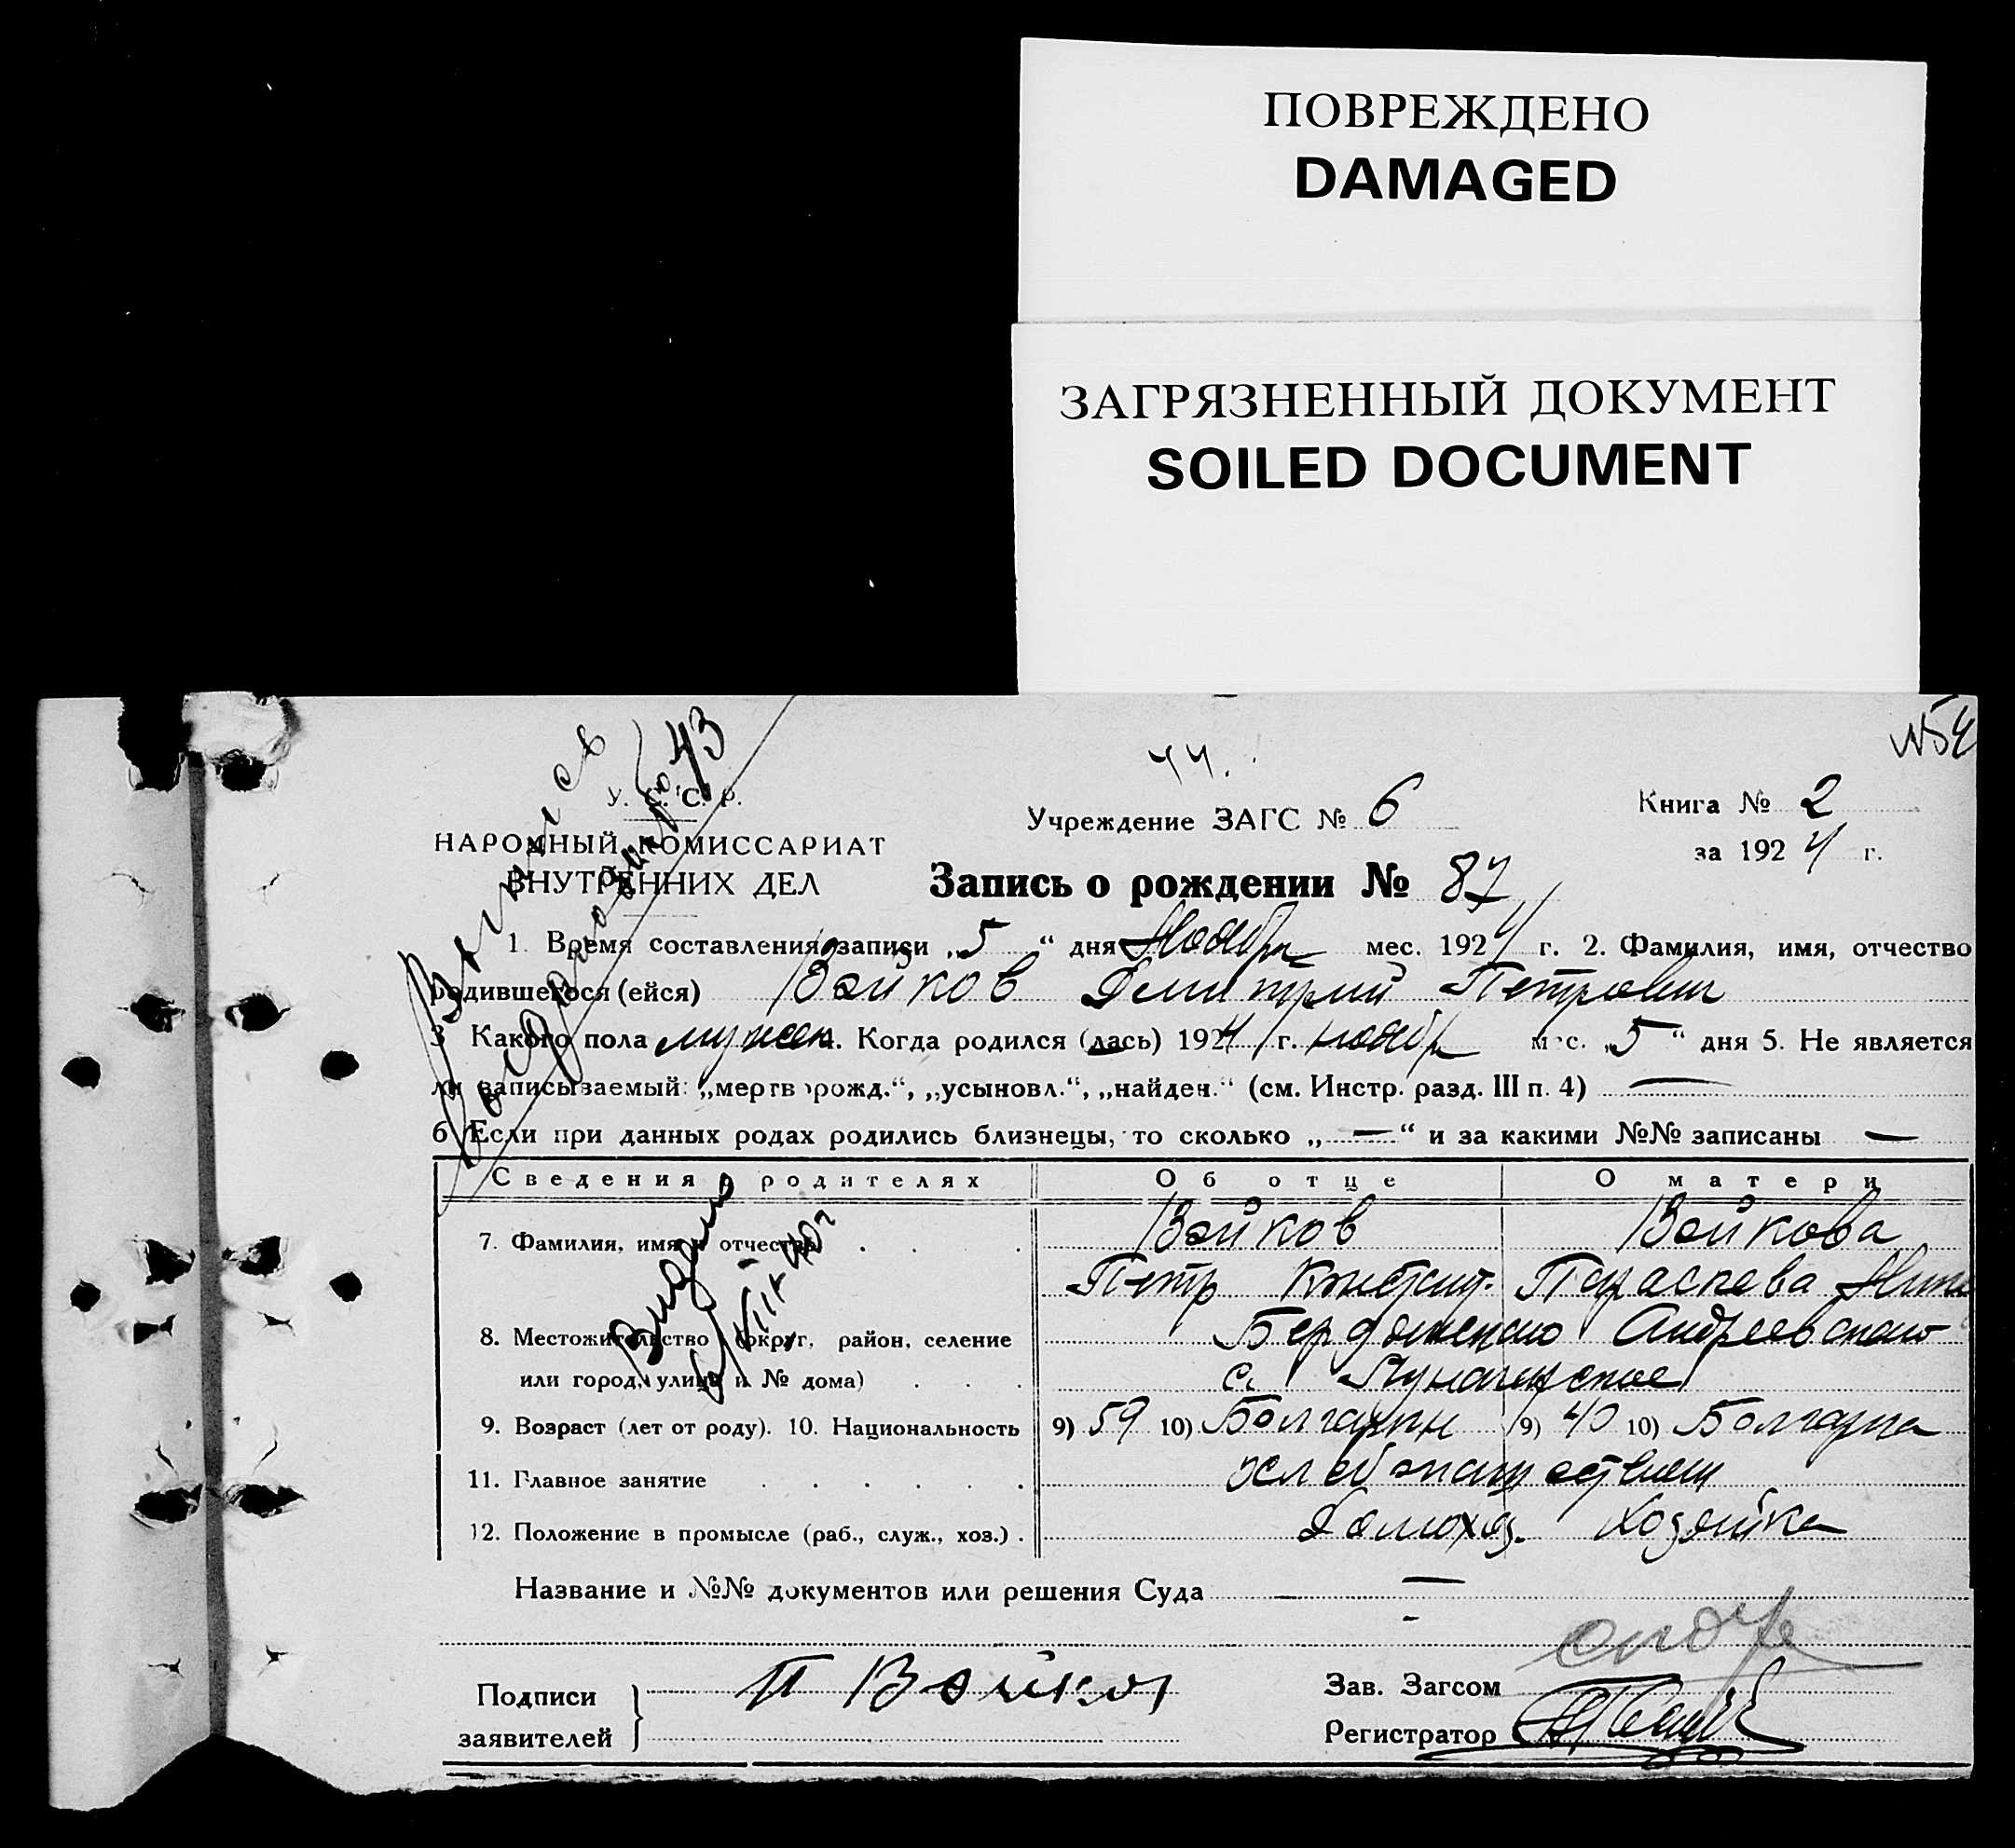 ПОВРЕЖДЕНО
DAMAGED
ЗАГРЯЗНЕННЫЙ ДОКУМЕНТ
SOILED DOCUMENT
№54
44.
У. С. С. Р.
НАРОДНЫЙ КОМИССАРИАТ
ВНУТРЕННИХ ДЕЛ
Учреждение ЗАГС № 6
Книга № 2
за 1924 г.
Запись о рождении № 87
1. Время составления записи „5“ дня Ноября мес. 1924 г. 2. Фамилия, имя, отчество
родившегося (ейся) Войков Демитрий Петрович
3 Какого пола мужск. Когда родился (лась) 1924 г. ноябр мес. „5“ дня 5. Не является
ли записываемый: „мертворожд.“, „усыновл.“, „найден.“ (см. Инстр. разд. III п. 4) —
6 Если при данных родах родились близнецы, то сколько „—“ и за какими №№ записаны —
Сведения о родителях Об отце О матери
7. Фамилия, имя и отчество Войков Войкова
Петр Параскева
8. Местожительство (округ, район, селение Андреевского
или город, улица и № дома) с.
9. Возраст (лет от роду). 10. Национальность 9) 59 10) Болгарин 9) 40 10) Болгарка
11. Главное занятие хлебопашеством
12. Положение в промысле (раб., служ., хоз.) Домохоз. Хозяйка
Название и №№ документов или решения Суда —
Подписи
заявителей
П Войков
Зав. Загсом
Регистратор